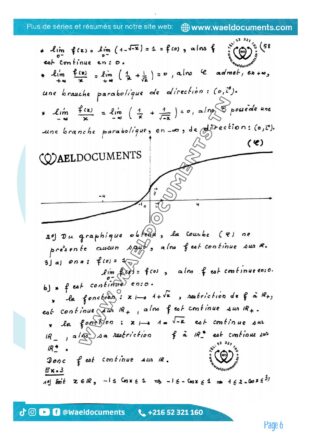 Plus de séries et résumés sur notre site web: www.waeldocuments.com
* lim f(x) = lim (1-√-x) = 1 = f(0), alors f
est continue en: 0.
* lim f(x)/x = lim (1/x + 1/√x) = 0, alors admet, en +∞,
une branche parabolique de direction: (0,i⃗).
* lim f(x)/x = lim (1/x + 1/√-x) = 0, alors possède une
une branche parabolique, en -∞, de direction: (0,i⃗).
(φ)
WAELDOCUMENTS
2°) Du graphique obtenu, la courbe (φ) ne
présente aucun saut, alors f est continue sur ℝ.
3) a) on a: f(0) = 1
lim f(x) = f(0), alors f est continue en: 0.
b) * f est continue en: 0.
* la fonction: x ↦ 1+√x, restriction de f à ℝ+,
est continue sur ℝ+, alors f est continue sur ℝ+.
* la fonction: x ↦ 1-√-x est continue sur
ℝ-, alors sa restriction f à ℝ* est continue sur
ℝ*.
Donc f est continue sur ℝ.
Ex:3
1) Soit x ∈ ℝ, -1 ≤ cos x ≤ 1
@Waeldocuments +216 52 321 160
Page 6